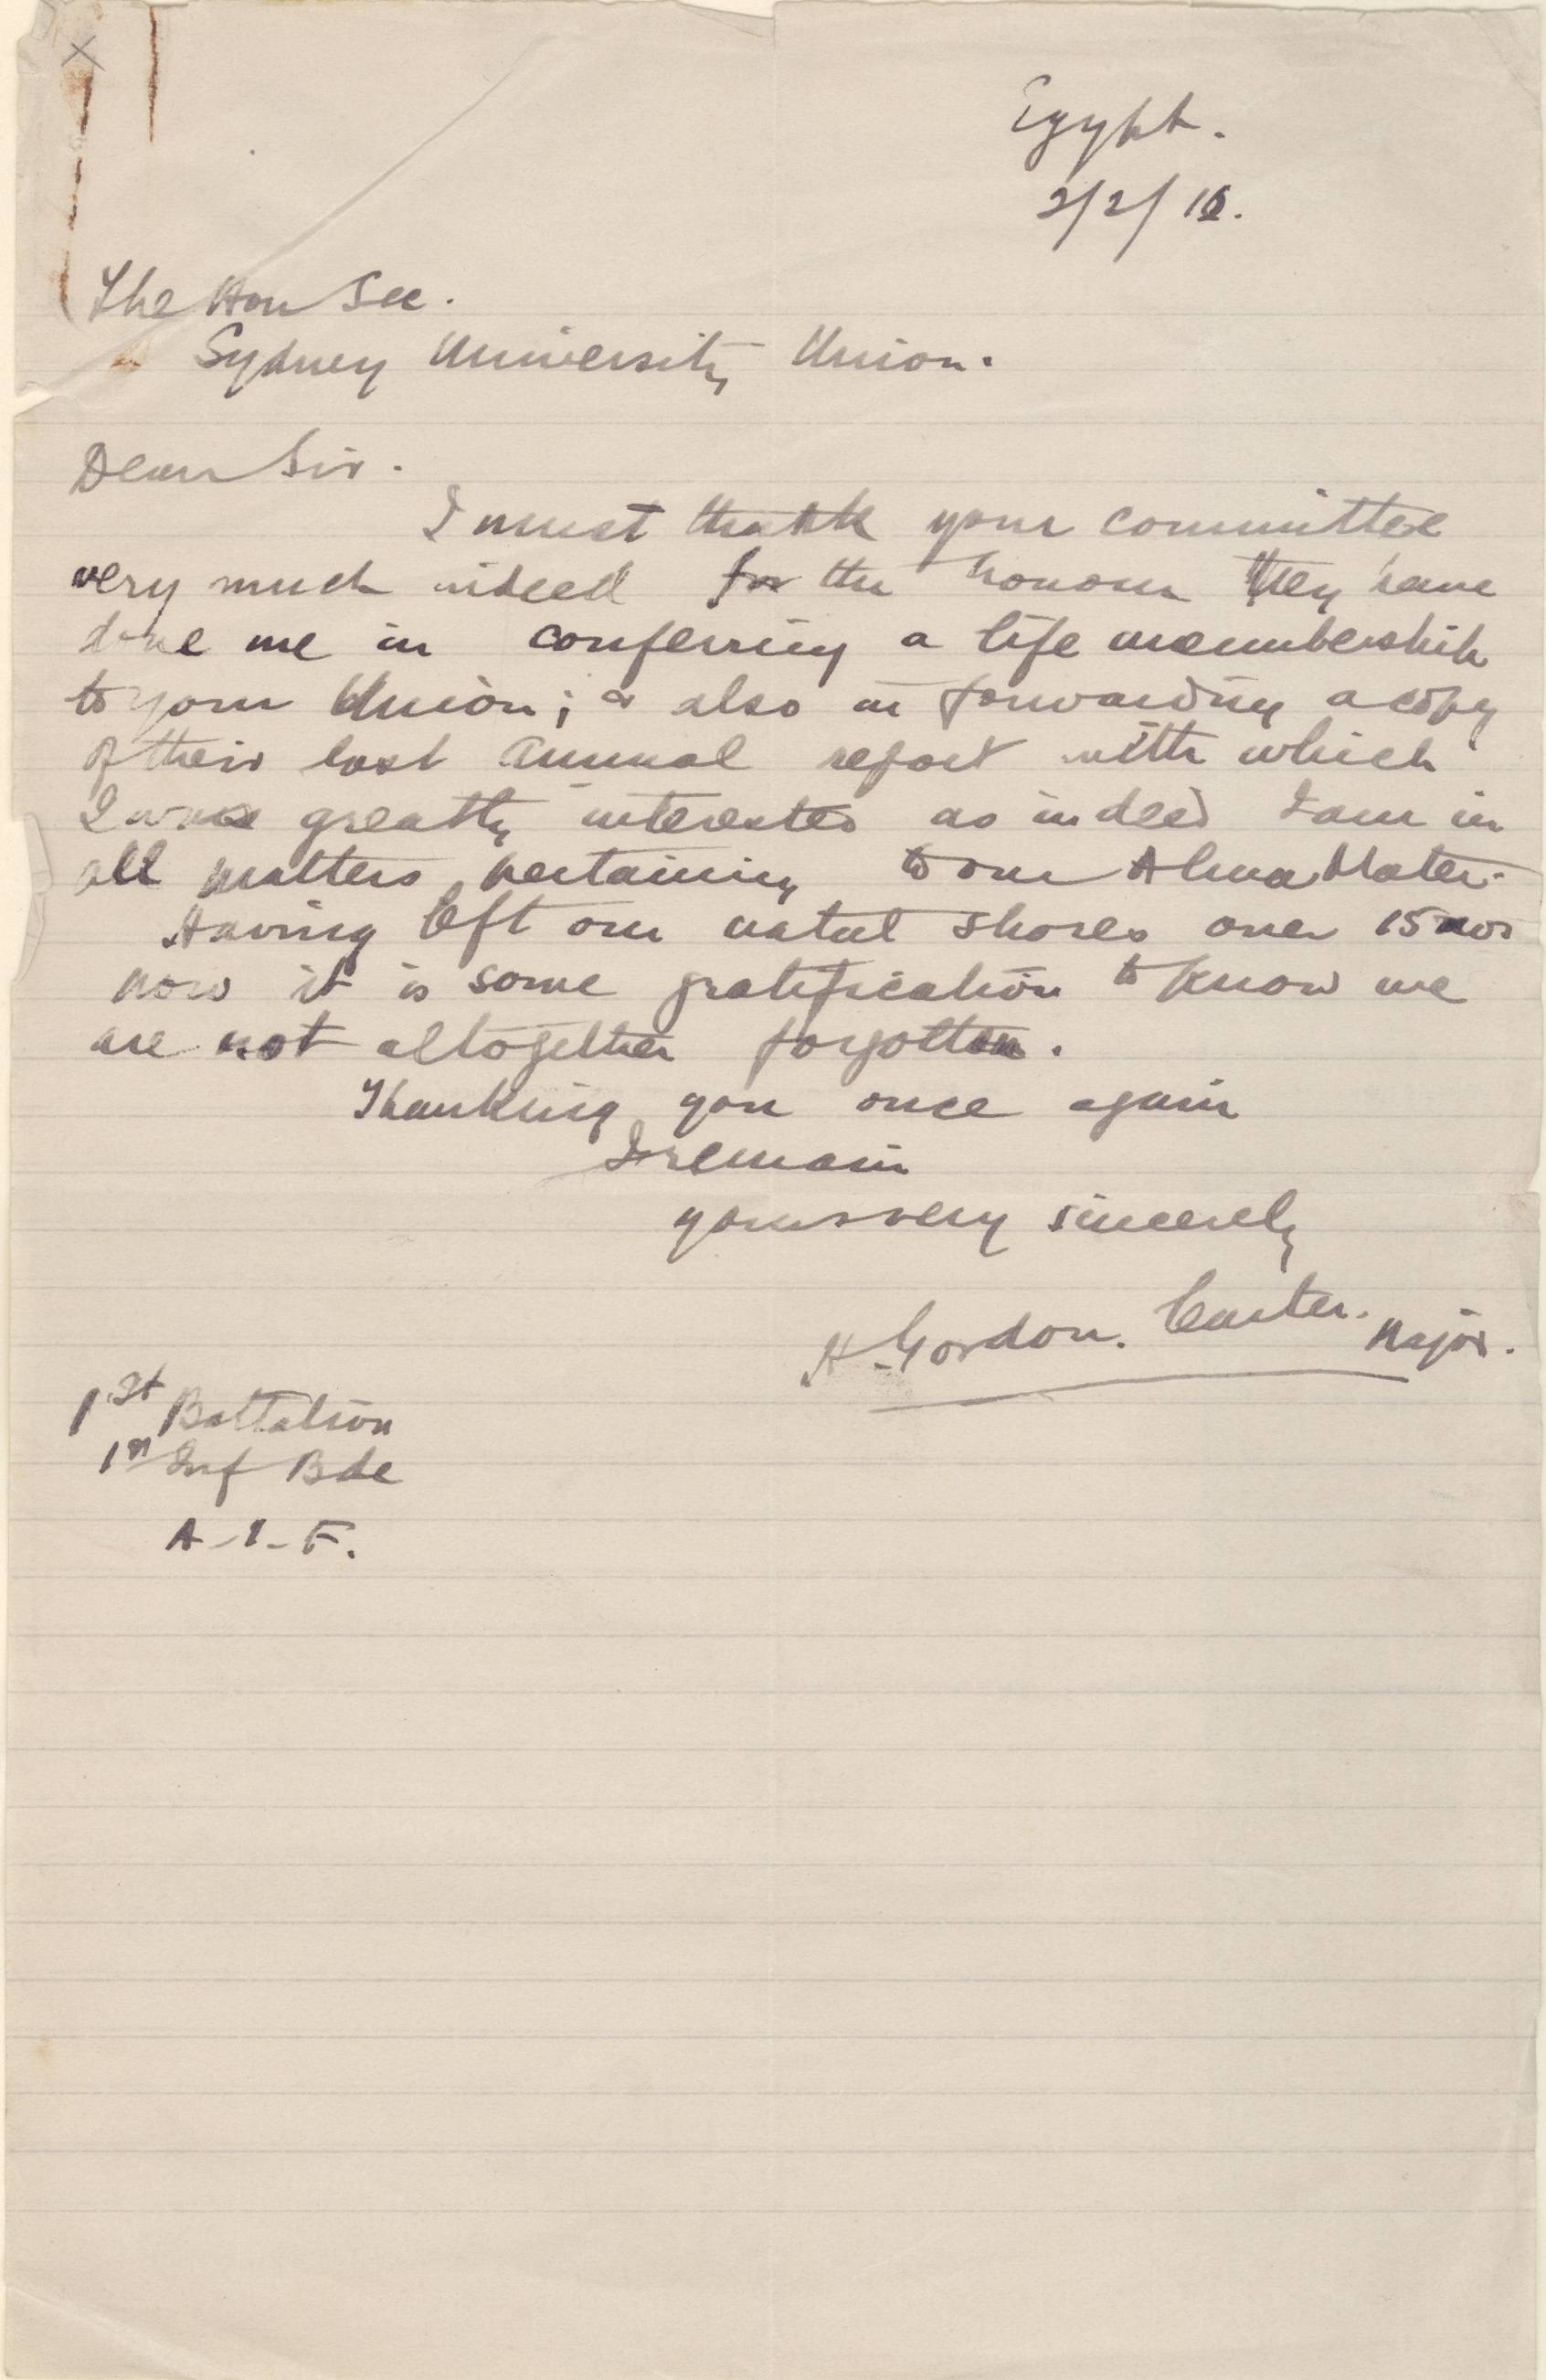 Egypt.
2/2/16.
The Hon Sec.
Sydney University Union.
Dear Sir.
I must thank your committee
very much indeed for the honour they have
done me in conferring a life membership
to your Union; & also in forwarding a copy
of their last annual report with which
I was greatly interested as indeed I am in
all matters pertaining to our Alma Mater.
Having left our natal shores over 15 mos
now it is some gratification to know we
are not altogether forgotten.
Thanking you once again
I remain
yours very sincerely
H. Gordon. Carter. Major.
1st Battalion
1st Inf Bde
A.I.F.